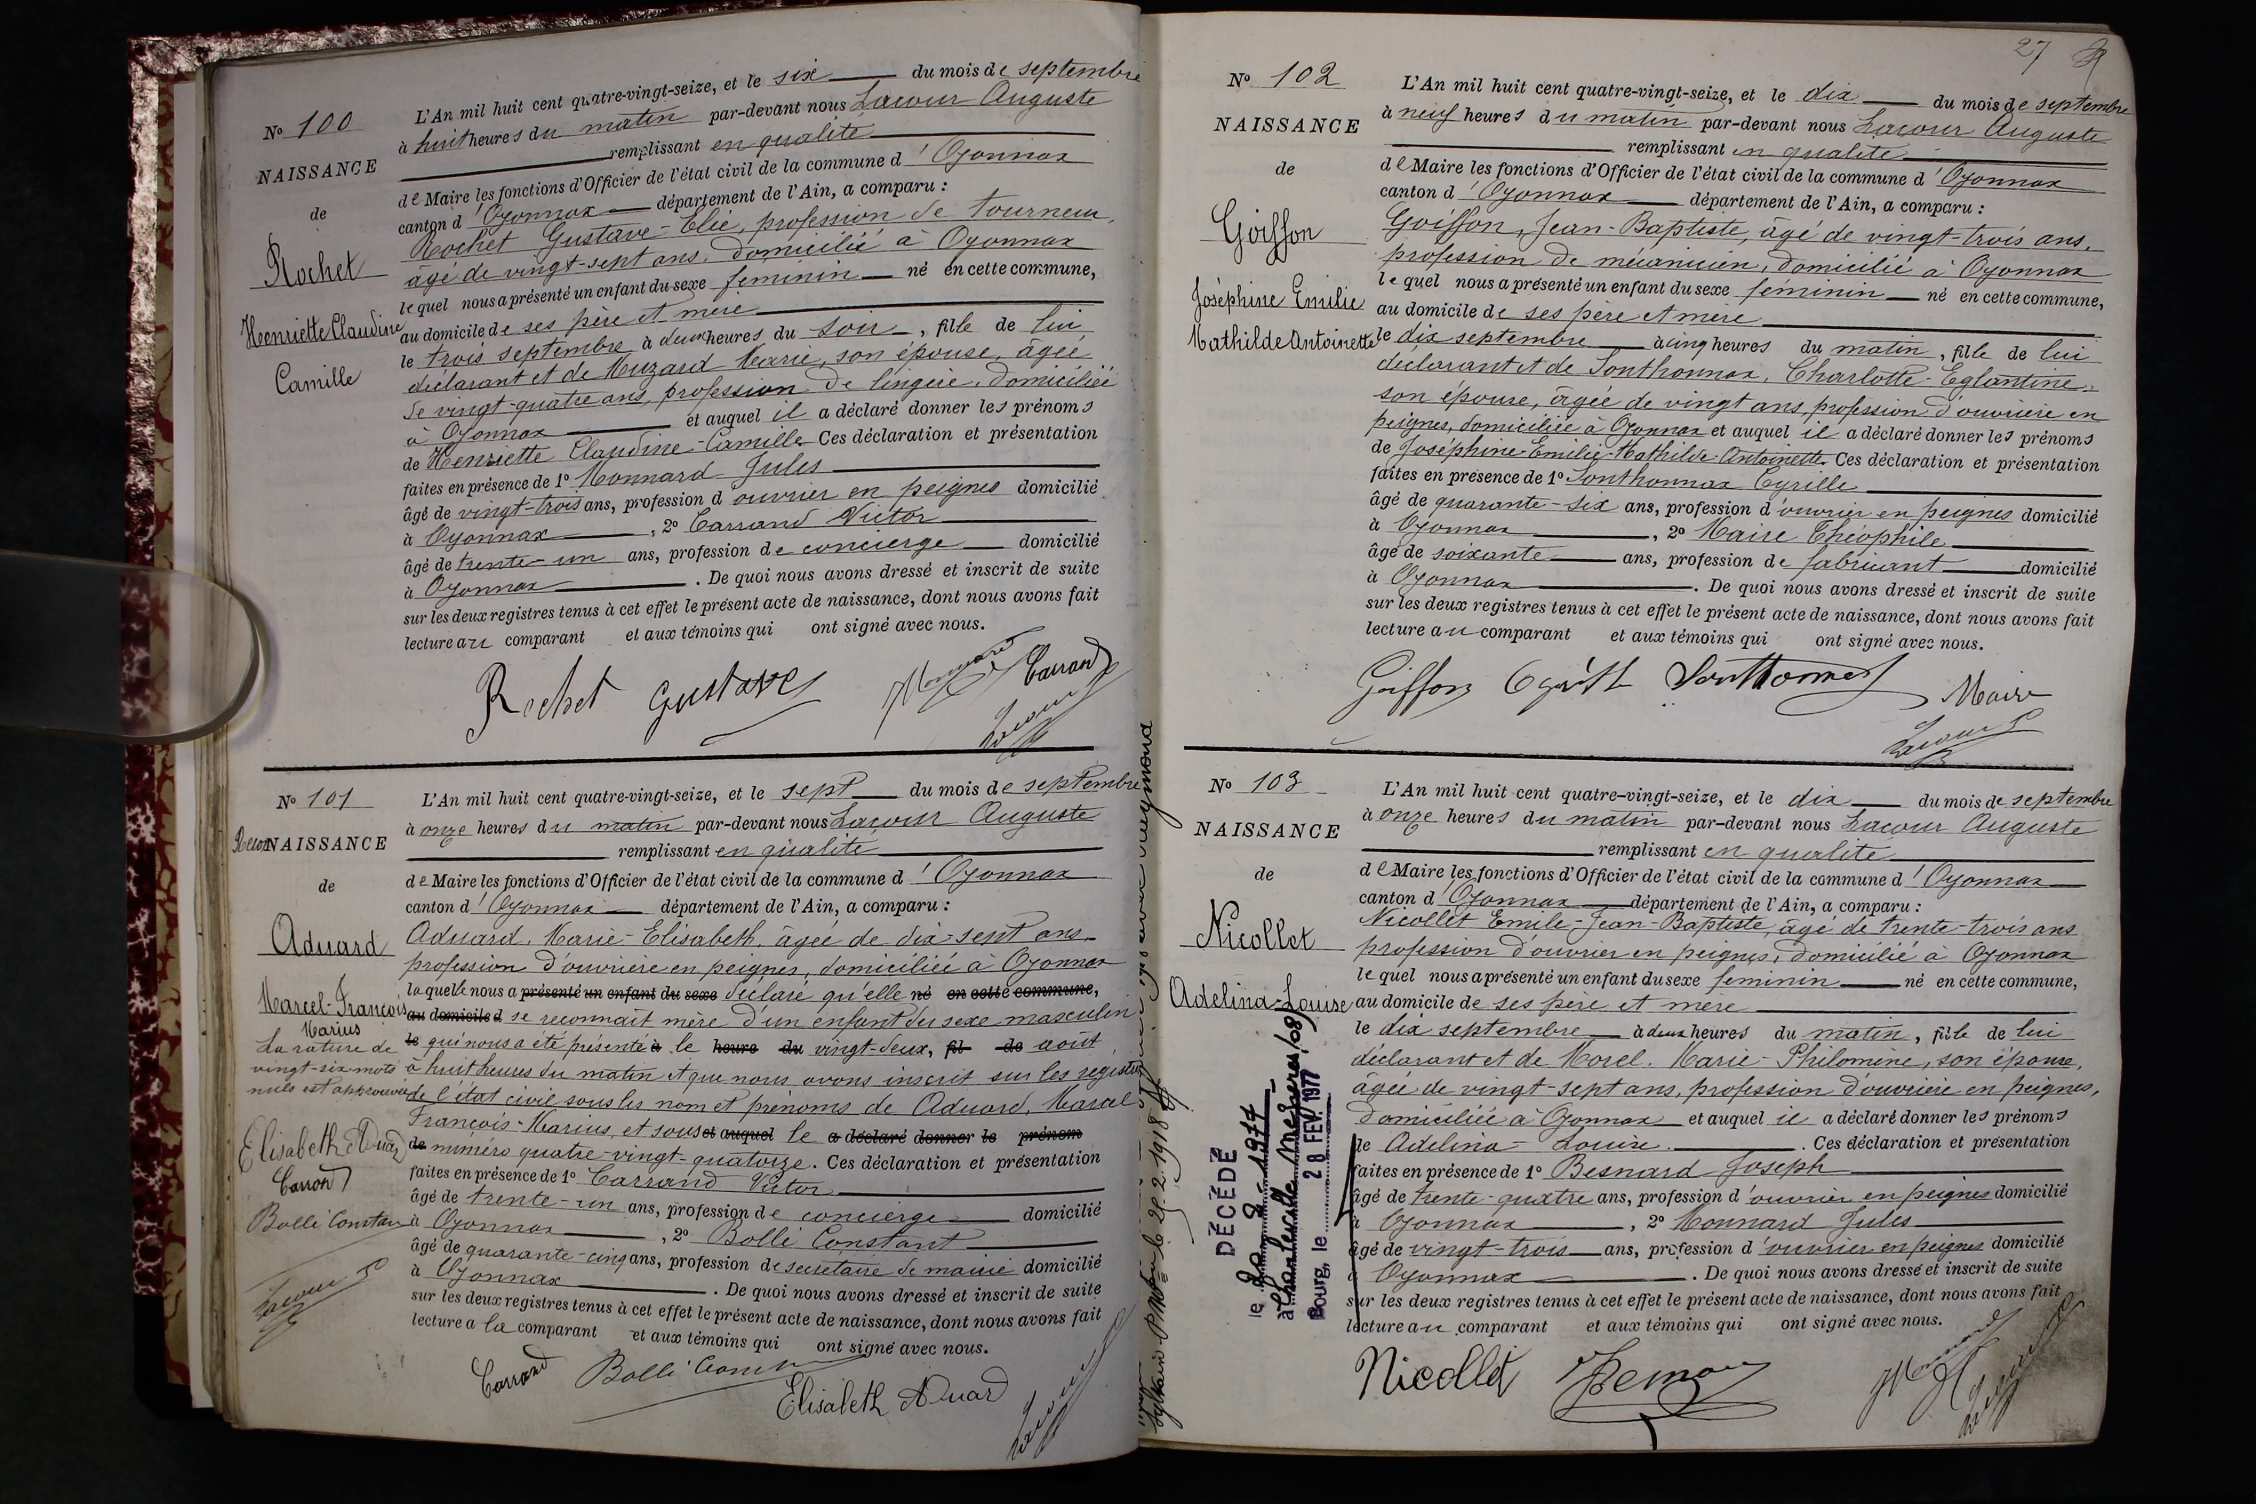 Nº 100
NAISSANCE
de
Rochet
Henriette Claudine
Camille
L'An mil huit cent quatre-vingt-seize, et le six du mois de septembre
à huit heures du matin par-devant nous Lacour Auguste
remplissant en qualité
de Maire les fonctions d'Officier de l'état civil de la commune d'Oyonnax
canton d'Oyonnax département de l'Ain, a comparu :
Rochet Gustave-Elie, profession de tourneur,
âgé de vingt-sept ans, domicilié à Oyonnax
lequel nous a présenté un enfant du sexe féminin né en cette commune,
au domicile de ses père et mère
le trois septembre à deux heures du soir, fille de lui
déclarant et de Muzard Marie, son épouse, âgée
de vingt-quatre ans, profession de lingère, domiciliée
à Oyonnax et auquel il a déclaré donner les prénoms
de Henriette Claudine-Camille. Ces déclaration et présentation
faites en présence de 1º Monnard Jules
âgé de vingt-trois ans, profession d'ouvrier en peignes domicilié
à Oyonnax, 2º Carrand Victor
âgé de trente-un ans, profession de concierge domicilié
à Oyonnax. De quoi nous avons dressé et inscrit de suite
sur les deux registres tenus à cet effet le présent acte de naissance, dont nous avons fait
lecture au comparant et aux témoins qui ont signé avec nous.
Rochet Gustave Monnard Carrand
Lacour
Nº 101
Recon NAISSANCE
de
Aduard
Marcel-François
Marius
La rature de
vingt-six mots
nuls est approuvée
Elisabeth Aduard
Carrand
Bolle Constant
Lacour
L'An mil huit cent quatre-vingt-seize, et le sept du mois de septembre
à onze heures du matin par-devant nous Lacour Auguste
remplissant en qualité
de Maire les fonctions d'Officier de l'état civil de la commune d'Oyonnax
canton d'Oyonnax département de l'Ain, a comparu :
Aduard, Marie-Elisabeth, âgée de dix-sept ans
profession d'ouvrière en peignes, domiciliée à Oyonnax
laquelle nous a présenté un enfant du sexe déclaré qu'elle né en cette commune,
au domicile d se reconnait mère d'un enfant du sexe masculin
le qui nous a été présenté à le heure du vingt-deux, fil de août
à huit heures du matin et que nous avons inscrit sur les registres
de l'état civil sous les nom et prénoms de Aduard, Marcel
François-Marius, et sous et auquel le a déclaré donner le prénom
de numéro quatre-vingt-quatorze. Ces déclaration et présentation
faites en présence de 1º Carrand Victor
âgé de trente-un ans, profession de concierge domicilié
à Oyonnax, 2º Bolle Constant
âgé de quarante-cinq ans, profession de secrétaire de mairie domicilié
à Oyonnax. De quoi nous avons dressé et inscrit de suite
sur les deux registres tenus à cet effet le présent acte de naissance, dont nous avons fait
lecture a la comparant et aux témoins qui ont signé avec nous.
Carrand Bolle Constant
Elisabeth Aduard
Lacour
27
Nº 102
NAISSANCE
de
Goiffon
Joséphine Emilie
Mathilde Antoinette
L'An mil huit cent quatre-vingt-seize, et le dix du mois de septembre
à neuf heures du matin par-devant nous Lacour Auguste
remplissant en qualité
de Maire les fonctions d'Officier de l'état civil de la commune d'Oyonnax
canton d'Oyonnax département de l'Ain, a comparu :
Goiffon, Jean-Baptiste, âgé de vingt-trois ans,
profession de mécanicien, domicilié à Oyonnax
lequel nous a présenté un enfant du sexe féminin né en cette commune,
au domicile de ses père et mère
le dix septembre à cinq heures du matin, fille de lui
déclarant et de Sonthonnax, Charlotte-Eglantine
son épouse, âgée de vingt ans, profession d'ouvrière en
peignes, domiciliée à Oyonnax et auquel il a déclaré donner les prénoms
de Joséphine-Emilie-Mathilde-Antoinette. Ces déclaration et présentation
faites en présence de 1º Sonthonnax Cyrille
âgé de quarante-six ans, profession d'ouvrier en peignes domicilié
à Oyonnax, 2º Maire Théophile
âgé de soixante ans, profession de fabricant domicilié
à Oyonnax. De quoi nous avons dressé et inscrit de suite
sur les deux registres tenus à cet effet le présent acte de naissance, dont nous avons fait
lecture au comparant et aux témoins qui ont signé avec nous.
Goiffon Cyrille Sonthonnax Maire
Lacour
Nº 103
NAISSANCE
de
Nicollet
Adelina-Louise
DÉCÉDÉ
Bourg, le 28 FEV. 1977
L'An mil huit cent quatre-vingt-seize, et le dix du mois de septembre
à onze heures du matin par-devant nous Lacour Auguste
remplissant en qualité
de Maire les fonctions d'Officier de l'état civil de la commune d'Oyonnax
canton d'Oyonnax département de l'Ain, a comparu :
Nicollet Emile-Jean-Baptiste, âgé de trente-trois ans
profession d'ouvrier en peignes, domicilié à Oyonnax
lequel nous a présenté un enfant du sexe féminin né en cette commune,
au domicile de ses père et mère
le dix septembre à deux heures du matin, fille de lui
déclarant et de Morel, Marie-Philomène, son épouse,
âgée de vingt-sept ans, profession d'ouvrière en peignes,
domiciliée à Oyonnax et auquel il a déclaré donner les prénoms
de Adelina-Louise. Ces déclaration et présentation
faites en présence de 1º Besnard Joseph
âgé de trente-quatre ans, profession d'ouvrier en peignes domicilié
à Oyonnax, 2º Monnard Jules
âgé de vingt-trois ans, profession d'ouvrier en peignes domicilié
à Oyonnax. De quoi nous avons dressé et inscrit de suite
sur les deux registres tenus à cet effet le présent acte de naissance, dont nous avons fait
lecture au comparant et aux témoins qui ont signé avec nous.
Nicollet Monnard
Lacour